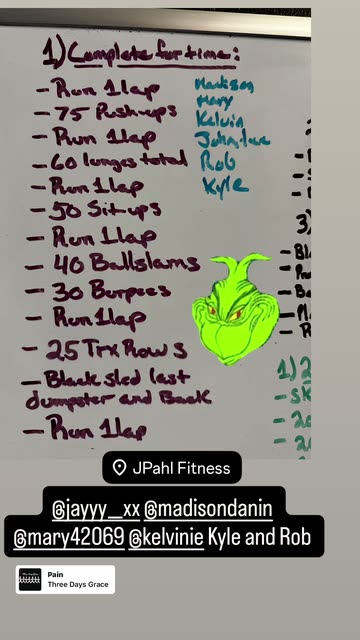 1) Complete for time:
- Run 1 lap
- 75 Push-ups
- Run 1 lap
- 60 lunges total
- Run 1 lap
- 50 Sit-ups
- Run 1 lap
- 40 Ballslams
- 30 Burpees
- Run 1 lap
- 25 Trx Rows
- Black sled last
dumpster and Back
- Run 1 lap
Madison
Mary
Kelvin
Rob
Kyle
3)
- Bl
1) 2
- SK
- 20
- 20
JPahl Fitness
@jayyy__xx @madisondanin
@mary42069 @kelvinie Kyle and Rob
Pain
Three Days Grace